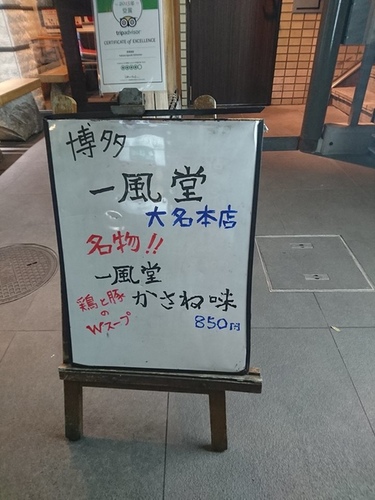 tripadvisor
CERTIFICATE of EXCELLENCE
博多
一風堂
大名本店
名物!!
一風堂
鶏と豚
の
Wスープ
かさね味
850円